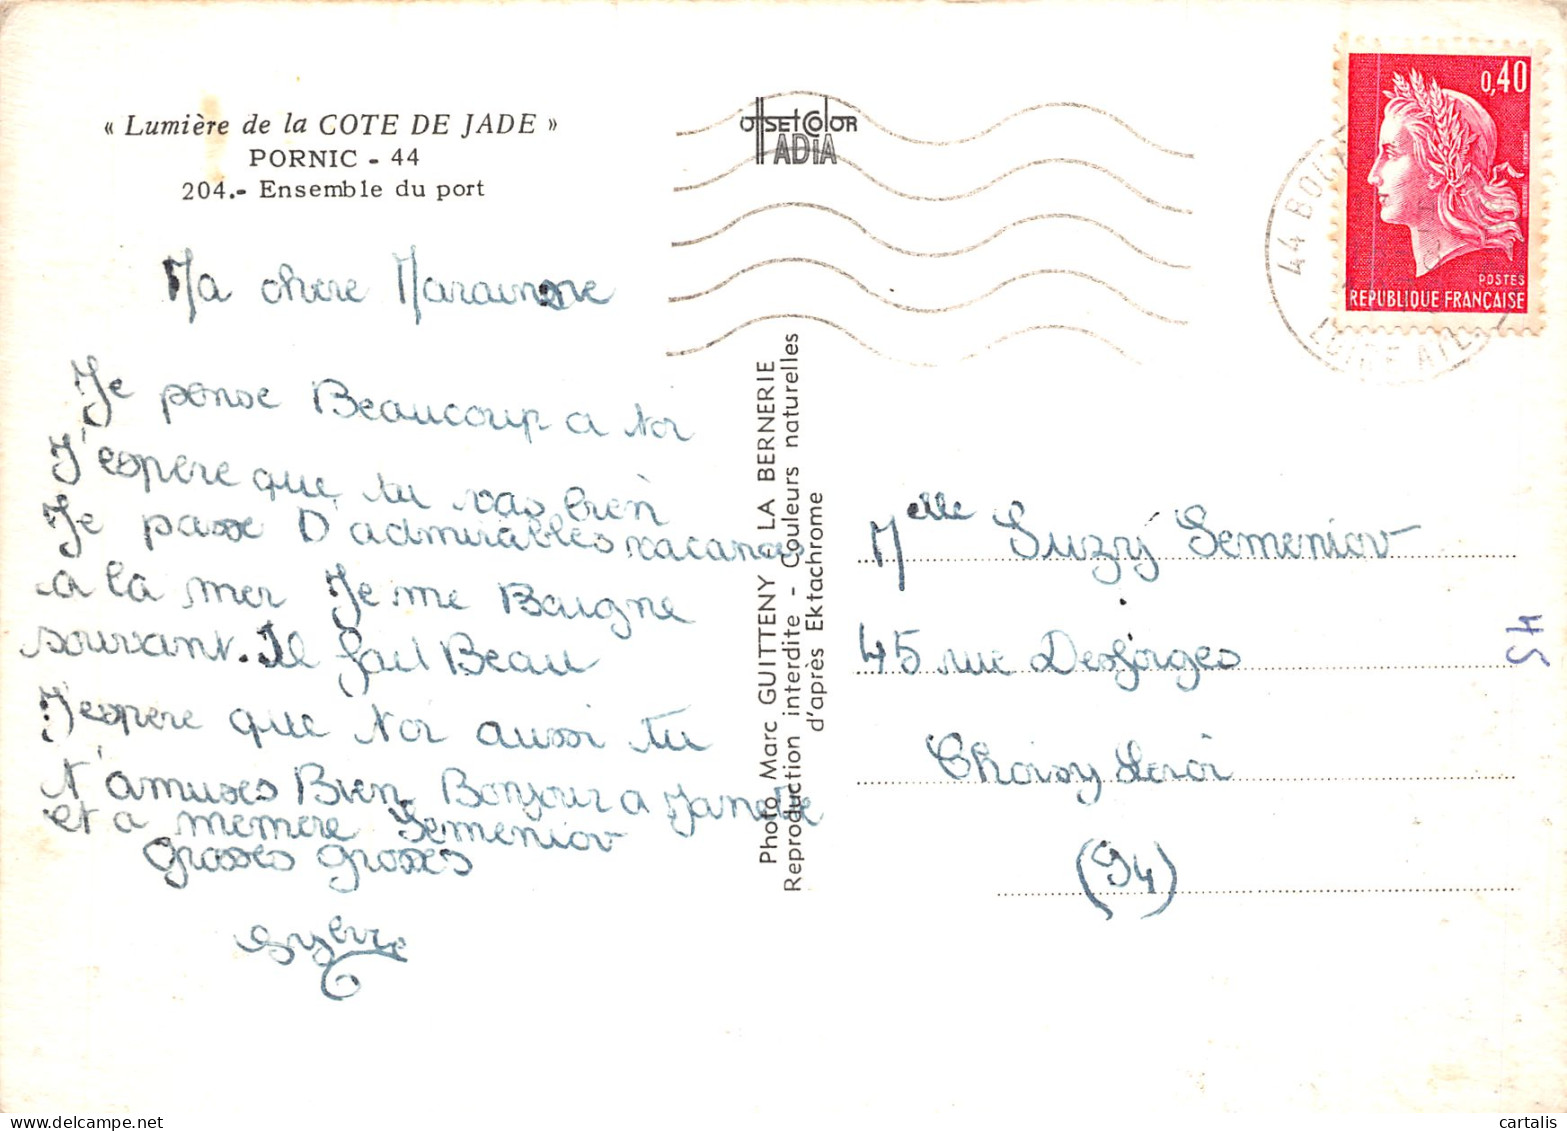 « Lumière de la COTE DE JADE »
PORNIC - 44
204.- Ensemble du port
Ma chere Marainne
Je pense Beaucoup a toi
J'espere que tu vas bien
Je passe D'admirables vacances
a la mer Je me Baigne
souvant. Il fait Beau
J'espere que toi aussi tu
t'amuses Bien Bonjour a Janette
et a memere Semeniov
grosses grosses
OffSET COLOR
ADIA
Photo Marc GUITTENY - LA BERNERIE
Reproduction interdite - Couleurs naturelles
d'après Ektachrome
0,40
POSTES
REPUBLIQUE FRANÇAISE
44
LOIRE ATL.
Melle Suzy Semeniov
45 rue Desforges
Choisy Leroi
(94)
45
cartalis